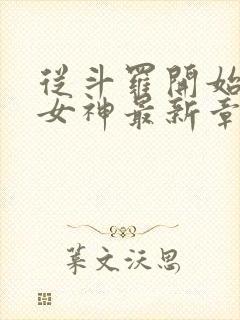 從斗羅開始
女神最新章
葉文沃思